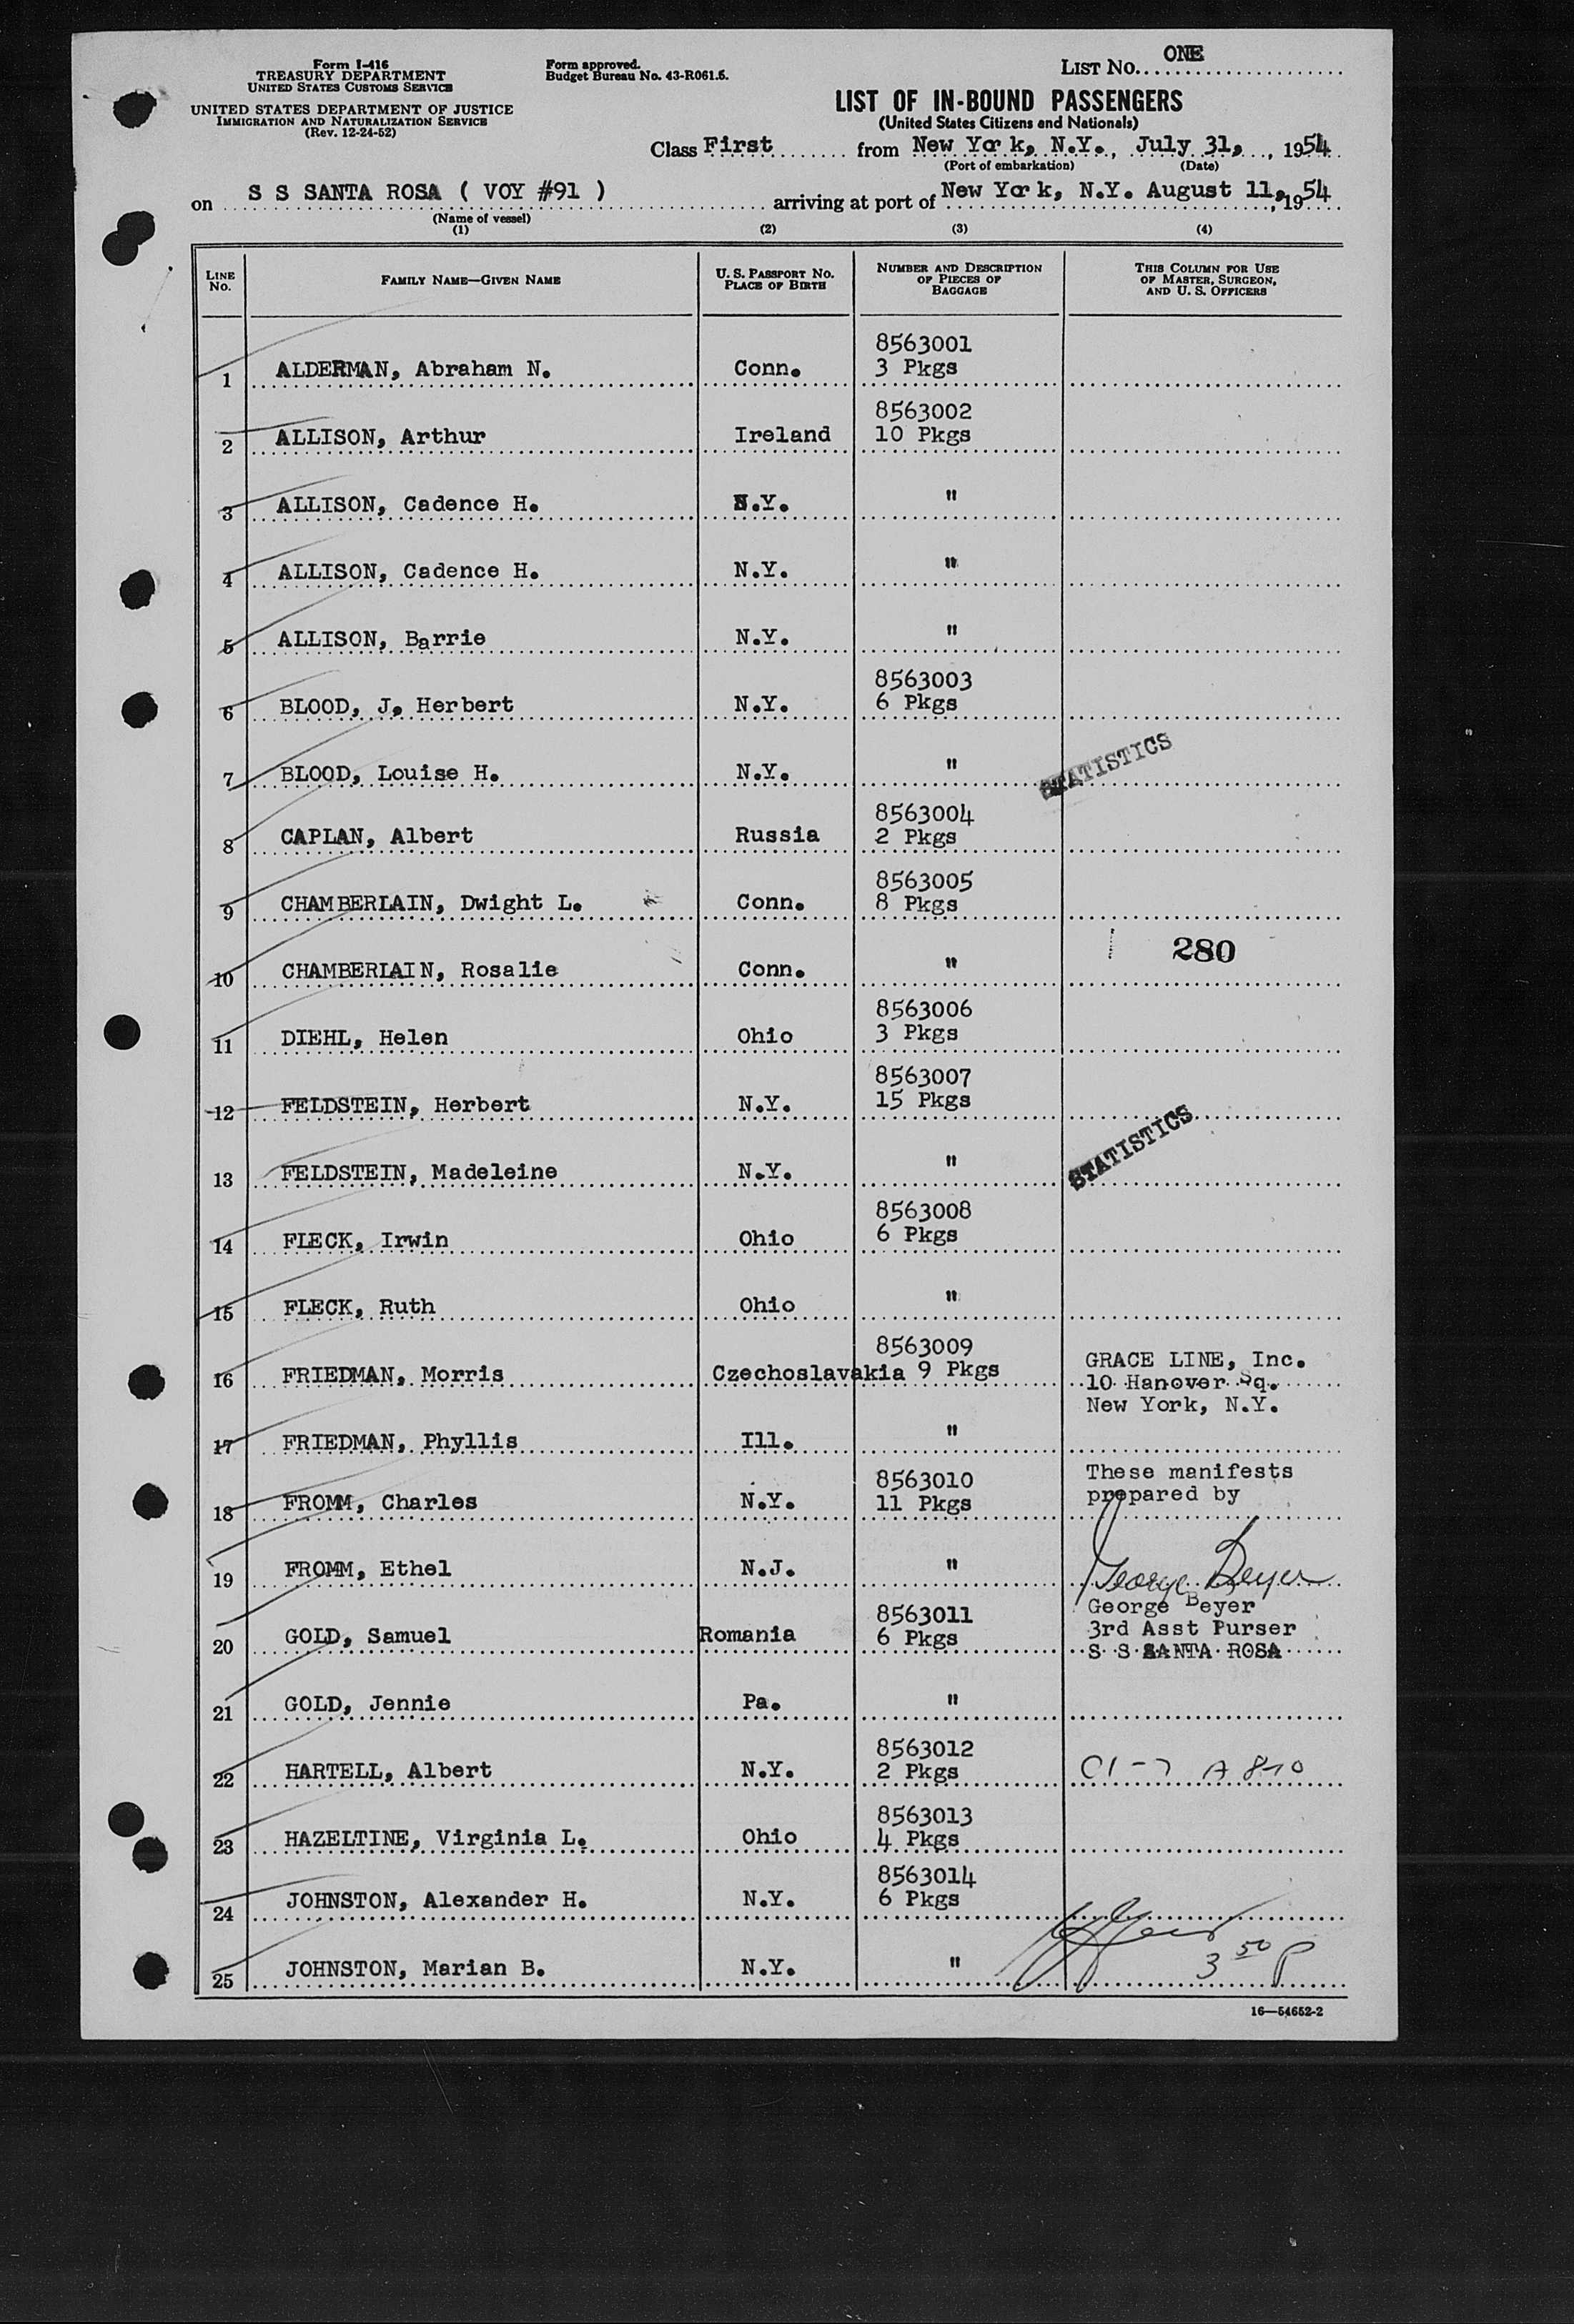 Form I-416
TREASURY DEPARTMENT
UNITED STATES CUSTOMS SERVICE
UNITED STATES DEPARTMENT OF JUSTICE
IMMIGRATION AND NATURALIZATION SERVICE
(Rev. 12-24-52)
Form approved.
Budget Bureau No. 43-R061.5.
LIST NO. ONE
LIST OF IN-BOUND PASSENGERS
(United States Citizens and Nationals)
Class First from New York, N.Y., July 31, , 1954
(Port of embarkation) (Date)
on S S SANTA ROSA ( VOY #91 ) arriving at port of New York, N.Y. August 11, , 1954
(Name of vessel)
(1) (2) (3) (4)
LINE NO. FAMILY NAME—GIVEN NAME U. S. PASSPORT NO. PLACE OF BIRTH NUMBER AND DESCRIPTION OF PIECES OF BAGGAGE THIS COLUMN FOR USE OF MASTER, SURGEON, AND U. S. OFFICERS
8563001
1 ALDERMAN, Abraham N. Conn. 3 Pkgs
8563002
2 ALLISON, Arthur Ireland 10 Pkgs
3 ALLISON, Cadence H. N.Y. "
4 ALLISON, Cadence H. N.Y. "
5 ALLISON, Barrie N.Y. "
8563003
6 BLOOD, J. Herbert N.Y. 6 Pkgs
7 BLOOD, Louise H. N.Y. " STATISTICS
8563004
8 CAPLAN, Albert Russia 2 Pkgs
8563005
9 CHAMBERLAIN, Dwight L. Conn. 8 Pkgs
10 CHAMBERLAIN, Rosalie Conn. " 280
8563006
11 DIEHL, Helen Ohio 3 Pkgs
8563007
12 FELDSTEIN, Herbert N.Y. 15 Pkgs
13 FELDSTEIN, Madeleine N.Y. " STATISTICS
8563008
14 FLECK, Irwin Ohio 6 Pkgs
15 FLECK, Ruth Ohio "
8563009
16 FRIEDMAN, Morris Czechoslavakia 9 Pkgs
GRACE LINE, Inc.
10 Hanover Sq.
New York, N.Y.
17 FRIEDMAN, Phyllis Ill. "
8563010
18 FROMM, Charles N.Y. 11 Pkgs
These manifests
prepared by
19 FROMM, Ethel N.J. " George Beyer
George Beyer
8563011
20 GOLD, Samuel Romania 6 Pkgs
3rd Asst Purser
S S SANTA ROSA
21 GOLD, Jennie Pa. "
8563012
22 HARTELL, Albert N.Y. 2 Pkgs
8563013
23 HAZELTINE, Virginia L. Ohio 4 Pkgs
8563014
24 JOHNSTON, Alexander H. N.Y. 6 Pkgs
25 JOHNSTON, Marian B. N.Y. " 3 50 P
16—54652-2